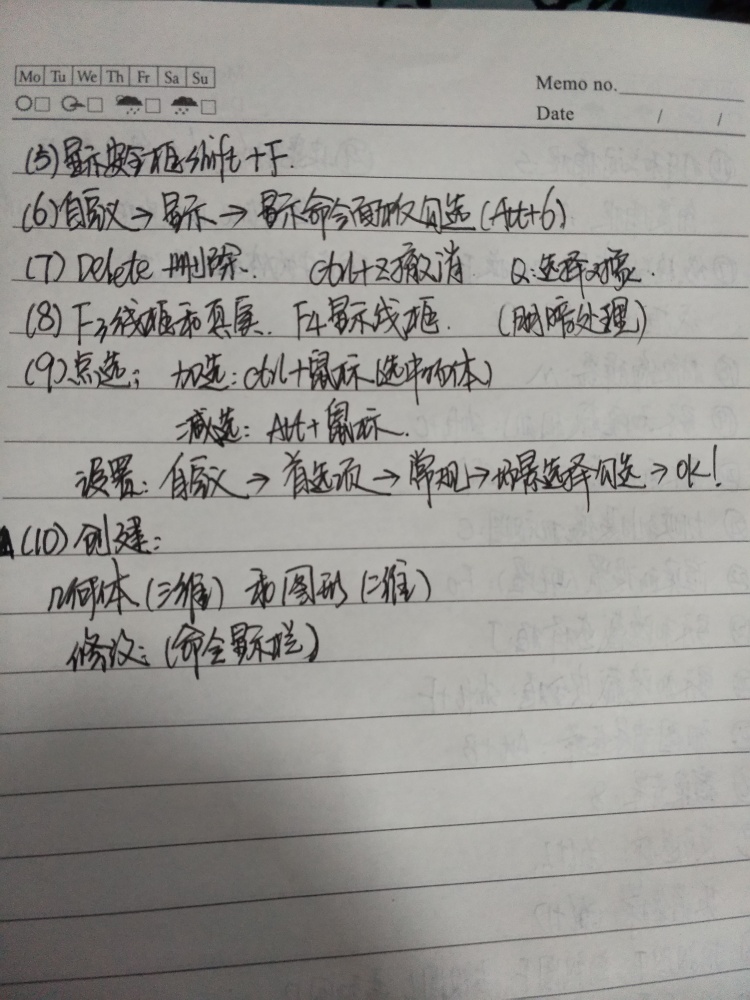 Mo Tu We Th Fr Sa Su
Memo no.
Date / /
(5)显示安全框shift+F.
(6)自定义→显示→显示命令面板勾选(Alt+6)
(7)Delete 删除. ctrl+Z撤消 Q:选择对象.
(8)F3线框和真实. F4显示线框. (明暗处理)
(9)点选: 加选:ctrl+鼠标(选中物体)
减选: Alt+鼠标.
设置: 自定义→首选项→常规→场景选择勾选→OK!
(10)创建:
几何体(三维) 和图形(二维)
修改:(命令显示栏)